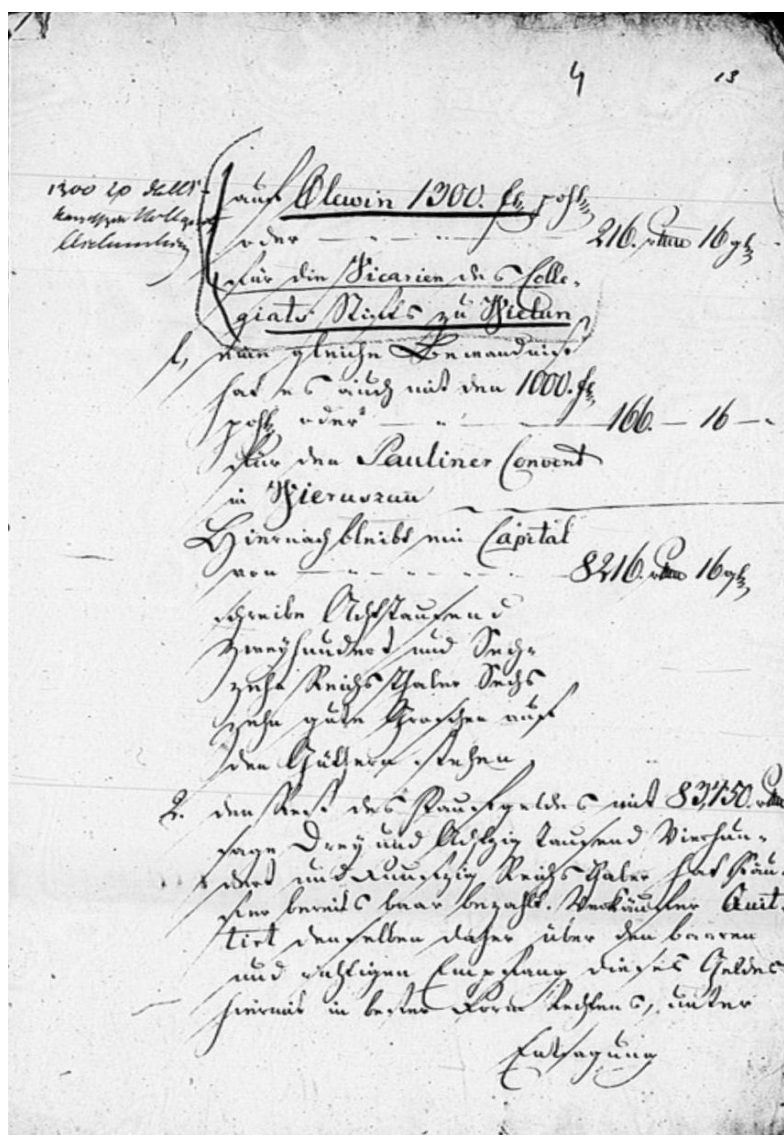 4 13
auf Olewin 1300. fl. pohl.
oder — — — 216. rthlr 16 gl.
für die Vicarien des Colle-
giat Stifts zu Wielun
f, eine gleiche Bewandniß
hat es auch mit den 1000. fl.
pohl. oder — — — 166. — 16 —
für den Pauliner Convent
in Wieruszau
Hiernach bleibt ein Capital
von — — — 8216. rthlr 16 gl.
schreibe Achttausend
Zweyhundert und Sech-
zehn Reichsthaler Sechs
zehn gute Groschen auf
den Güthern stehen,
2. den Rest des Kaufgeldes mit 83,450. rthlr
sage Drey und Achtzig tausend Vierhun-
dert und Funfzig Reichsthaler hat Käu-
fer bereits baar bezahlt. Verkäuffer Quit-
tirt denselben daher über den baaren
und richtigen Empfang dieses Geldes
hiermit in bester Form Rechtens, unter
Entsagung